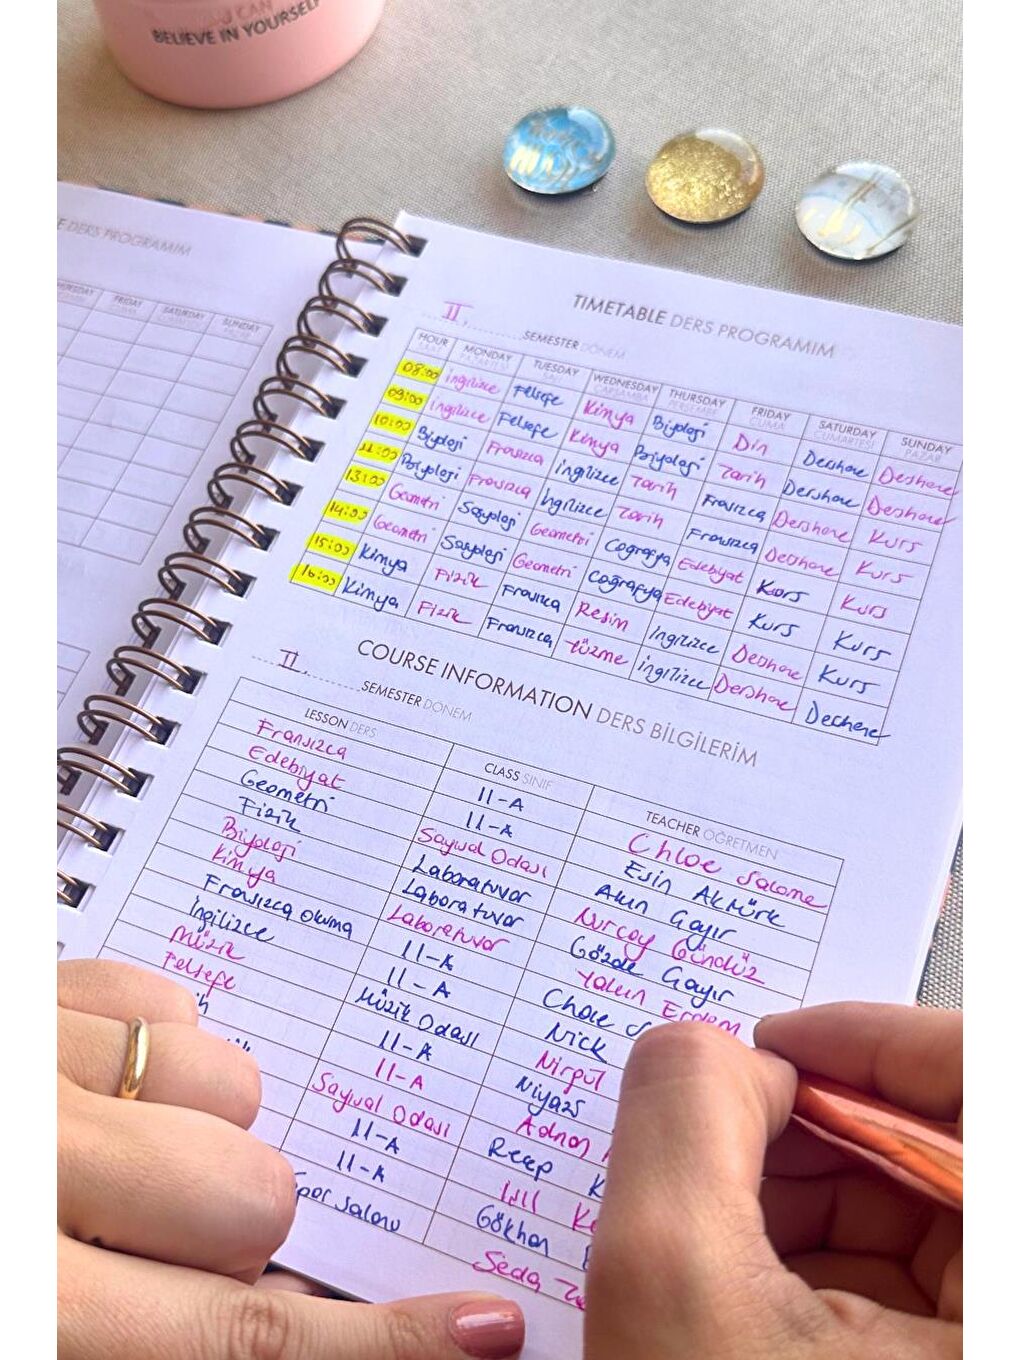 YOU CAN
BELIEVE IN YOURSELF
E DERS PROGRAMIM
THURSDAY FRIDAY SATURDAY SUNDAY
CUMA CUMARTESİ PAZAR
TIMETABLE DERS PROGRAMIM
II. SEMESTER DÖNEM
HOUR MONDAY TUESDAY WEDNESDAY THURSDAY FRIDAY SATURDAY SUNDAY
SAAT PAZARTESİ SALI ÇARŞAMBA PERŞEMBE CUMA CUMARTESİ PAZAR
08:00 İngilizce Felsefe Kimya Biyoloji Din Dershane Dershane
09:00 İngilizce Felsefe Kimya Biyoloji Tarih Dershane Dershane
10:00 Biyoloji Fransızca İngilizce Tarih Fransızca Dershane Kurs
11:00 Biyoloji Fransızca İngilizce Tarih Fransızca Dershane Kurs
13:00 Geometri Sosyoloji Geometri Coğrafya Edebiyat Kurs Kurs
14:00 Geometri Sosyoloji Geometri Coğrafya Edebiyat Kurs Kurs
15:00 Kimya Fizik Fransızca Resim İngilizce Dershane Kurs
16:00 Kimya Fizik Fransızca Yüzme İngilizce Dershane Dershane
COURSE INFORMATION DERS BİLGİLERİM
II. SEMESTER DÖNEM
LESSON DERS CLASS SINIF TEACHER ÖĞRETMEN
Fransızca 11-A Chloe Salome
Edebiyat 11-A Esin Aktürk
Geometri Sayısal Odası Akın Gayır
Fizik Laboratuvar Nurcay Gündüz
Biyoloji Laboratuvar Gözde Gayır
Kimya Laboratuvar Yalın Erdem
Fransızca Okuma 11-A Chloe S
İngilizce 11-A Nick
Müzik Müzik Odası Nirgül
Felsefe 11-A Niyazi
ih 11-A Adnan
Sayısal Odası Recep K
11-A Ke
11-A Gökhan
Spor Salonu Seda